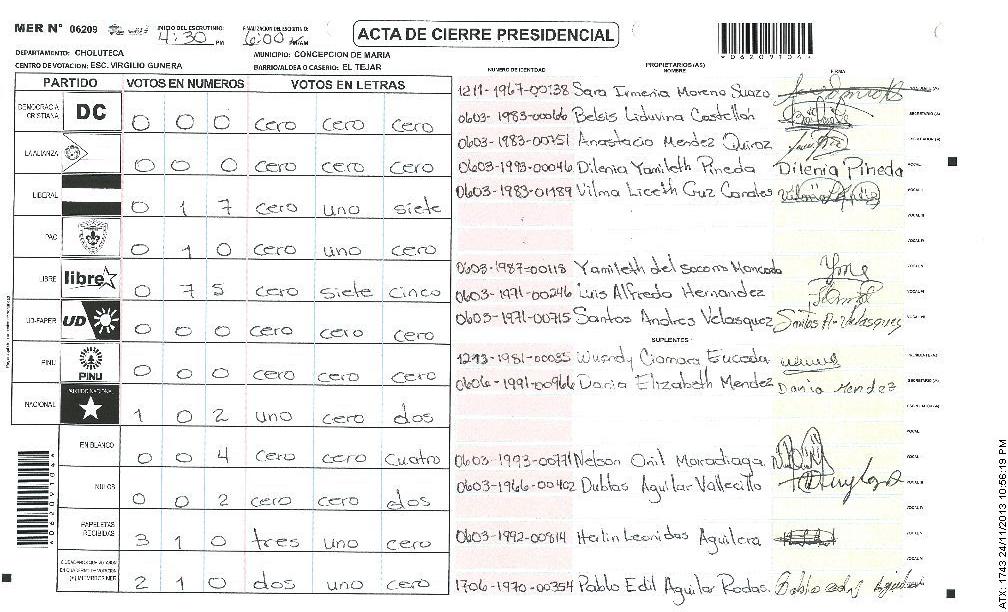 MER N° 06209 INICIO DEL ESCRUTINIO: 4:30 PM FINALIZACION DEL ESCRUTINIO: 6:00
ACTA DE CIERRE PRESIDENCIAL
*06209104*
DEPARTAMENTO: CHOLUTECA MUNICIPIO: CONCEPCION DE MARIA
CENTRO DE VOTACION: ESC. VIRGILIO GUNERA BARRIO/ALDEA O CASERIO: EL TEJAR
PARTIDO VOTOS EN NUMEROS VOTOS EN LETRAS
DEMOCRACIA CRISTIANA DC 0 0 0 cero cero cero
LA ALIANZA 0 0 0 cero cero cero
LIBERAL 0 1 7 cero uno siete
PAC 0 1 0 cero uno cero
LIBRE libre 0 7 5 cero siete cinco
UD-FAPER UD 0 0 0 cero cero cero
PINU PINU 0 0 0 cero cero cero
NACIONAL PARTIDO NACIONAL 1 0 2 uno cero dos
EN BLANCO 0 0 4 cero cero cuatro
NULOS 0 0 2 cero cero dos
PAPELETAS RECIBIDAS 3 1 0 tres uno cero
2 1 0 dos uno cero
NUMERO DE IDENTIDAD PROPIETARIOS (AS) NOMBRE FIRMA
1211-1967-00138 Sara Ermenia Moreno Suazo
0603-1983-00066 Belsis Liduvina Castellon SECRETARIO (A)
0603-1983-00751 Anastacio Mendez Quiroz ESCRUTADOR (A)
0603-1993-00046 Dilenia Yamileth Pineda Dilenia Pineda
0603-1983-01189 Vilma Liceth Cruz Canales
0603-1987-00118 Yamileth del socorro Moncada
0603-1971-00246 Luis Alfredo Hernandez
0603-1971-00715 Santos Andres Velasquez
SUPLENTES
1293-1981-00035
0606-1991-00966 Dania Elizabeth Mendez Dania Mendez
0603-1993-00771 Nelson Onil Maradiaga
0603-1966-00402 Dublas Aguilar Vallecillo
0603-1992-00814 Herlin Leonidas Aguilera
1706-1970-00354 Pablo Edil Aguilar Rodas.
*06209104*
ATX: 1743 24/11/2013 10:56:19 PM